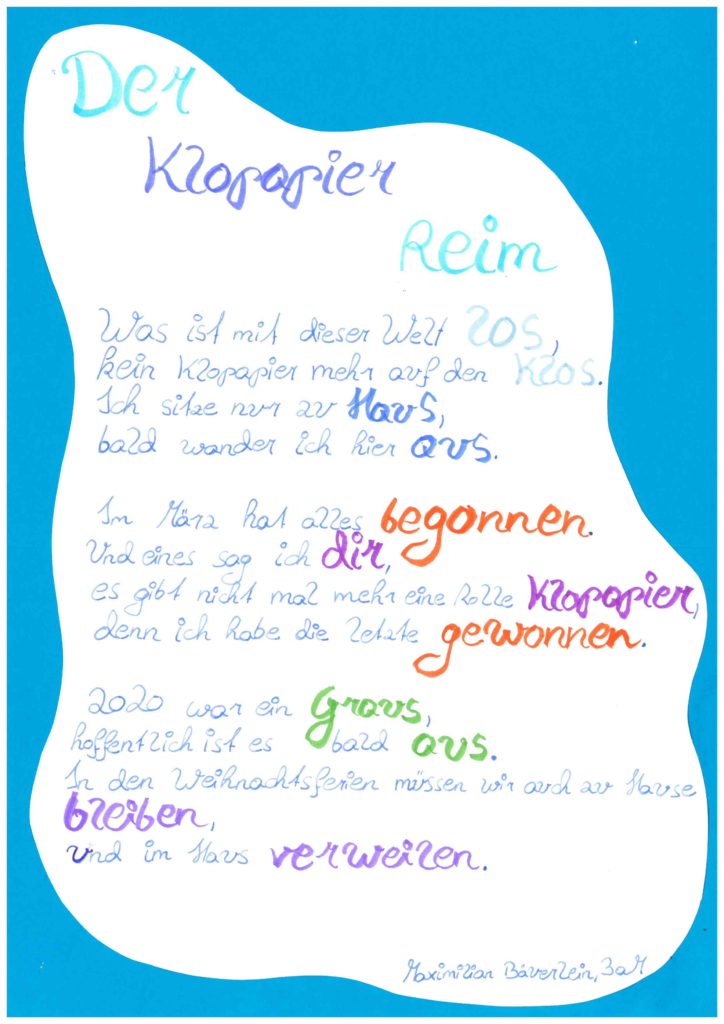 Der
Klopapier
Reim
Was ist mit dieser Welt los,
kein Klopapier mehr auf den Klos.
Ich sitze nur zu Haus,
bald wander ich hier aus.
Im März hat alles begonnen.
Und eines sag ich dir,
es gibt nicht mal mehr eine Rolle Klopapier,
denn ich habe die letzte gewonnen.
2020 war ein Graus,
hoffentlich ist es bald aus.
In den Weihnachtsferien müssen wir auch zu Hause
bleiben,
und im Haus verweilen.
Maximilian Bäuerlein, 3aM